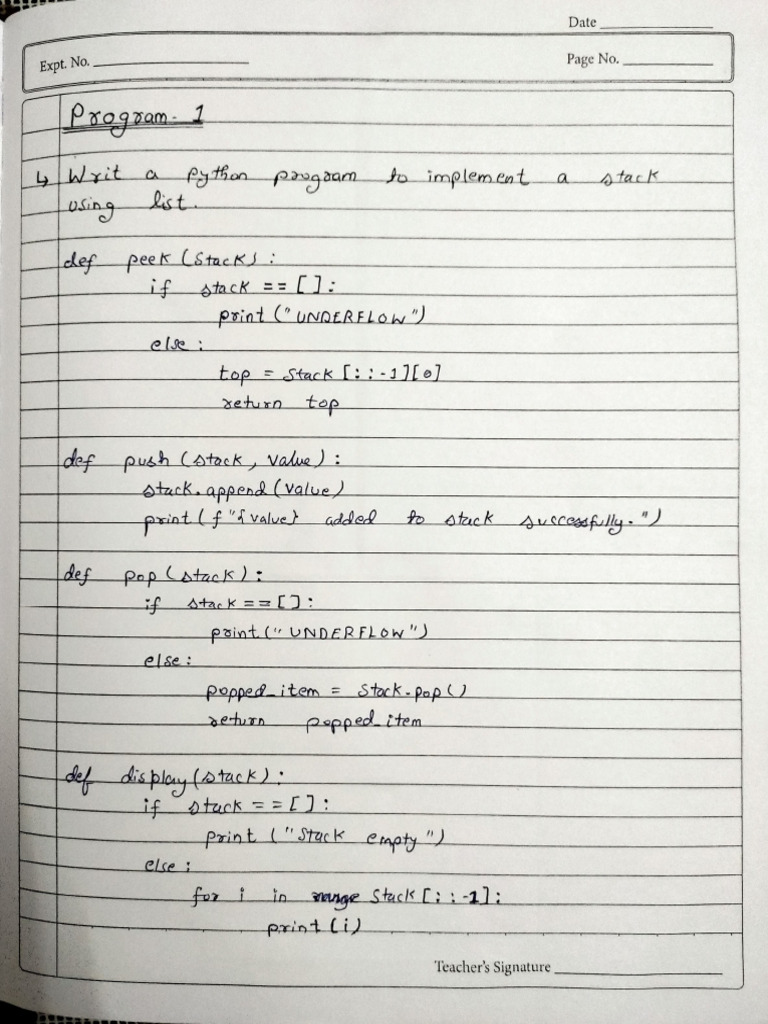 Date
Expt. No.
Page No.
Program- 1
↳ Writ a Python program to implement a stack
using list.
def peek (Stack) :
if stack == [] :
print ("UNDERFLOW")
else :
top = Stack [: : -1][0]
return top
def push (stack, value) :
stack.append (value)
print (f "{value} added to stack successfully.")
def pop (stack) :
if stack == [] :
print ("UNDERFLOW")
else :
popped_item = Stack.pop ()
return popped_item
def display (stack) :
if stack = = [] :
print ("Stack empty")
else :
for i in Stack [: : -1] :
print (i)
Teacher's Signature